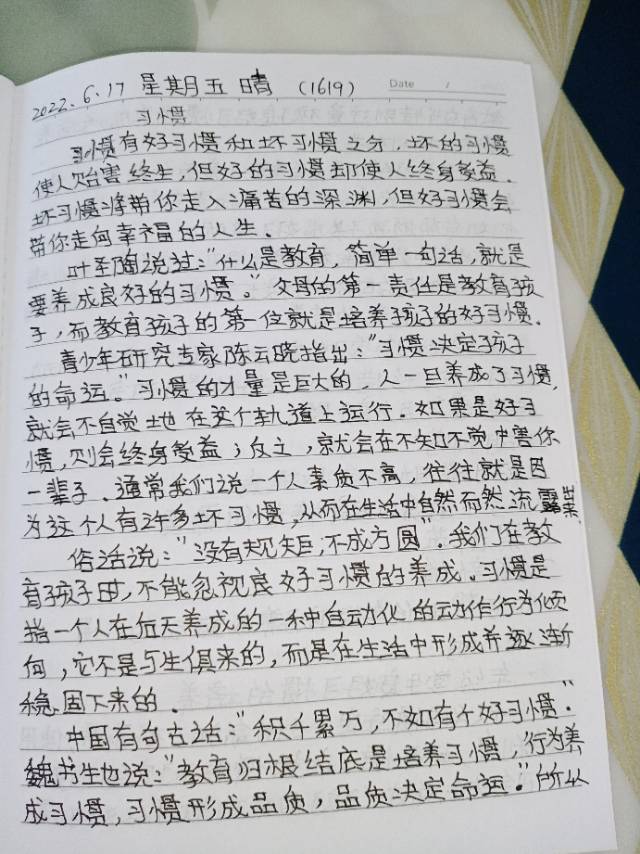 2022.6.17 星期五 晴 (1619) Date /
习惯
习惯有好习惯和坏习惯之分,坏的习惯
使人贻害终生,但好的习惯却使人终身受益.
坏习惯将带你走入痛苦的深渊,但好习惯会
带你走向幸福的人生.
叶圣陶说过:"什么是教育 简单一句话,就是
要养成良好的习惯。"父母的第一责任是教育孩
子,而教育孩子的第一位就是培养孩子的好习惯.
青少年研究专家陈云晓指出:"习惯决定孩子
的命运。"习惯的力量是巨大的,人一旦养成了习惯,
就会不自觉地在这个轨道上运行.如果是好习
惯,则会终身受益;反之,就会在不知不觉中害你
一辈子.通常我们说一个人素质不高,往往就是因
为这个人有许多坏习惯,从而在生活中自然而然流露出来.
俗话说:"没有规矩,不成方圆".我们在教
育孩子时,不能忽视良好习惯的养成.习惯是
指一个人在后天养成的一种自动化的动作行为倾
向,它不是与生俱来的,而是在生活中形成并逐渐
稳固下来的.
中国有句古话:"积千累万,不如有个好习惯."
魏书生也说:"教育归根结底是培养习惯,行为养
成习惯,习惯形成品质,品质决定命运."所以